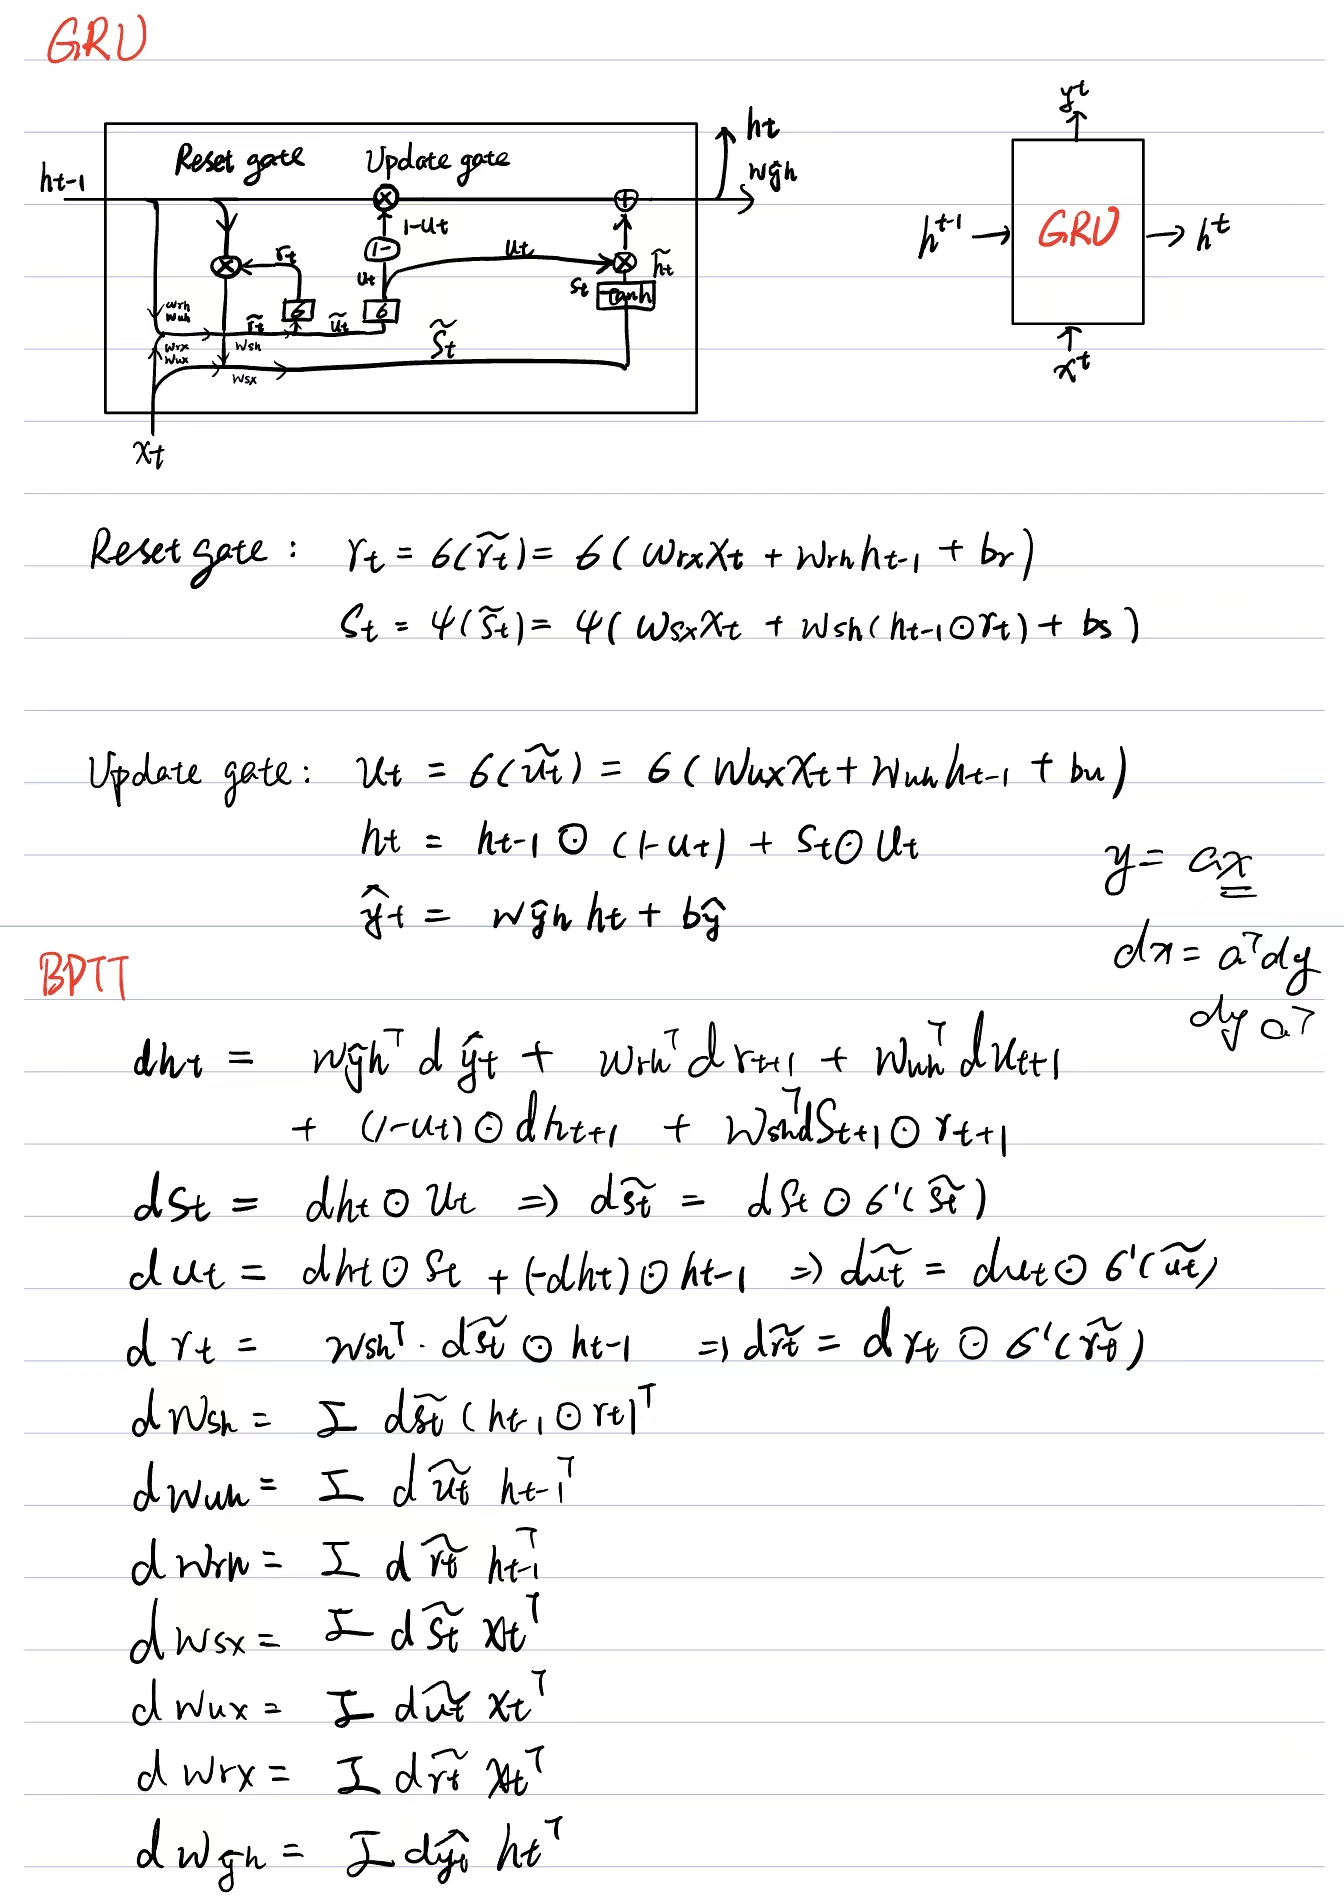 GRU
Reset gate
Update gate
ht-1
ht
wŷh
1-ut
1-
rt
ut
ut
h̃t
st
tanh
6
6
wrh
wuh
r̃t
ũt
wrx
wux
wsh
s̃t
wsx
xt
y^t
h^t-1
GRU
h^t
x^t
Reset gate : rt = 6(r̃t) = 6( wrx xt + wrh ht-1 + br)
St = ψ(s̃t) = ψ( wsx xt + wsh( ht-1⊙rt) + bs )
Update gate : ut = 6(ũt) = 6( wux xt + wuh ht-1 + bu)
ht = ht-1 ⊙ (1-ut) + st⊙ ut
ŷt = wŷh ht + bŷ
y = ax
dx = a^T dy
dy a^T
BPTT
dht = wŷh^T d ŷt + wrh^T d rt+1 + wuh^T d ut+1
+ (1-ut) ⊙ dht+1 + wsh^T dSt+1 ⊙ rt+1
dst = dht ⊙ ut => ds̃t = dst ⊙ 6'(s̃t)
dut = dht⊙ st + (-dht) ⊙ ht-1 => dũt = dut⊙ 6'(ũt)
drt = wsh^T · ds̃t ⊙ ht-1 => dr̃t = drt ⊙ 6'(r̃t)
dwsh = Σ ds̃t ( ht-1 ⊙ rt)^T
dwuh = Σ dũt ht-1^T
dwrh = Σ dr̃t ht-1^T
dwsx = Σ ds̃t xt^T
dwux = Σ dũt xt^T
dwrx = Σ dr̃t xt^T
dwŷh = Σ dŷt ht^T